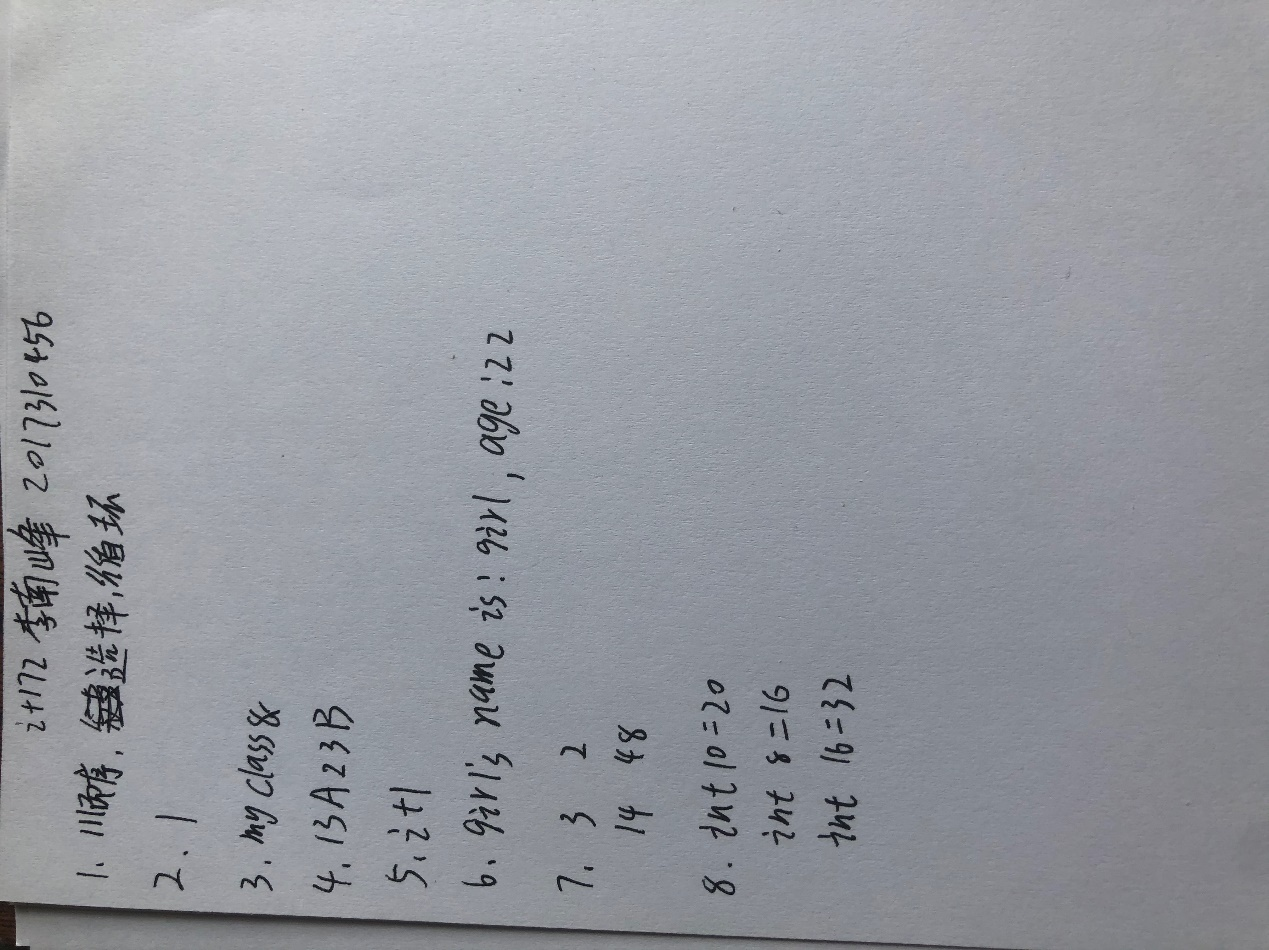 it172 李南峰 201731045b
1. 顺序, 选择,循环
2. 1
3. myclass&
4. 13A23B
5. i+1
6. girl's name is: girl, age:22
7. 3 2
14 48
8. int 10=20
int 8=16
int 16=32